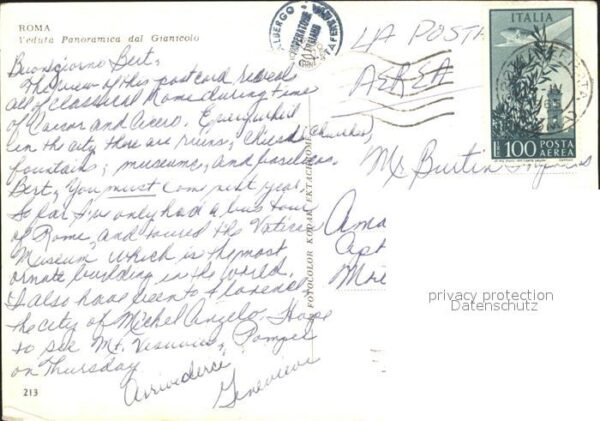 ROMA
Veduta Panoramica dal Gianicolo
Buongiorno Bert,
The view of this postcard reveal
all of Classical Rome during time
of Caesar and Cicero. Everywhere
in the city there are ruins, Chiesa (Churches),
fountains, museums, and
Bert, you must come next year.
So far I've only had a bus tour
of Rome, and toured the Vatican
Museum which is the most
ornate building in the world.
I also have been to Florence,
the city of Michel Angelo. Hope
to see Mt. Vesuvius, Pompeii
on Thursday
Arrividerci,
Genevieve
213
FOTOCOLOR KODAK EKTACHROME
ALBERGO
LA POSTA
AEREA
ITALIA
L. 100 POSTA
AEREA
Mr Burtin
Ama
Apt
privacy protection
Datenschutz